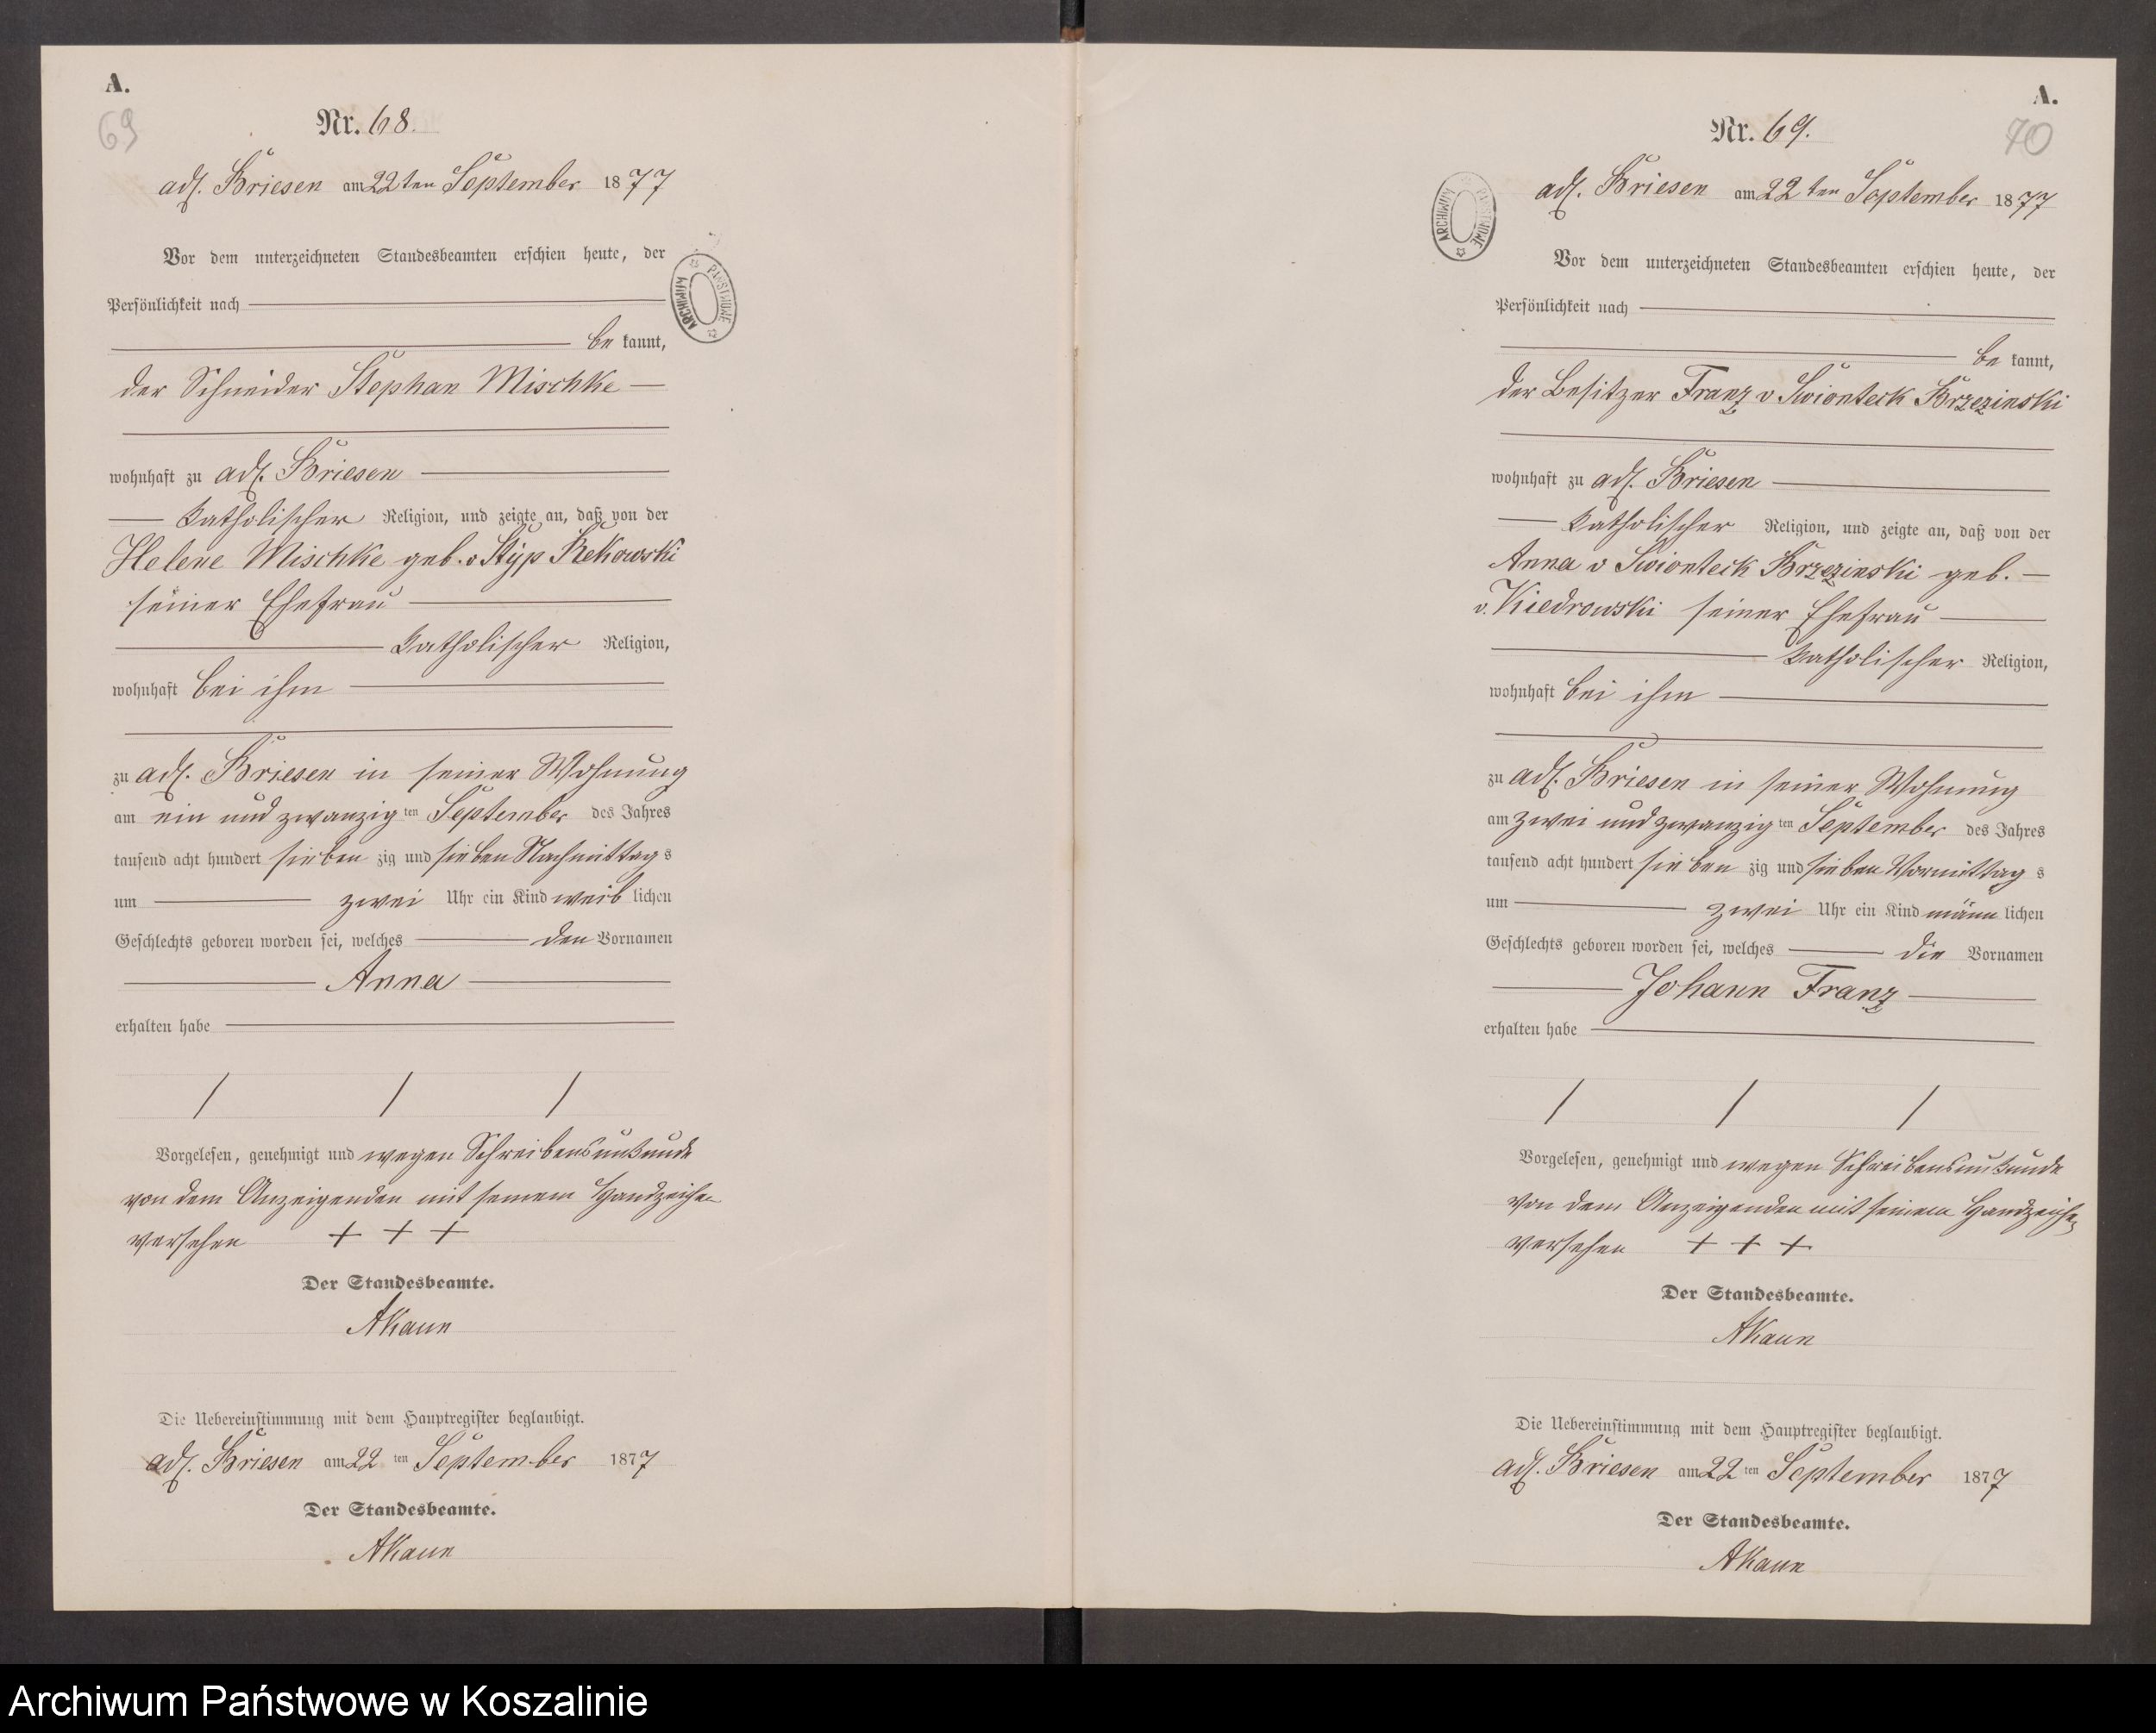 A.
69
Nr. 68.
adl. Briesen am 22ten September 1877
Vor dem unterzeichneten Standesbeamten erschien heute, der
Persönlichkeit nach
be kannt,
der Schneider Stephan Mischke
wohnhaft zu adl. Briesen
katholischer Religion, und zeigte an, daß von der
Helene Mischke geb. v Styp Rekowski
seiner Ehefrau
katholischer Religion,
wohnhaft bei ihm
zu adl. Briesen in seiner Wohnung
am ein und zwanzig ten September des Jahres
tausend acht hundert sieben zig und sieben Nachmittag s
um zwei Uhr ein Kind weib lichen
Geschlechts geboren worden sei, welches den Vornamen
Anna
erhalten habe
Vorgelesen, genehmigt und wegen Schreibensunkunde
von dem Anzeigenden mit seinem Handzeichen
versehen + + +
Der Standesbeamte.
AKaun
Die Uebereinstimmung mit dem Hauptregister beglaubigt.
adl. Briesen am 22 ten September 1877
Der Standesbeamte.
AKaun
ARCHIWUM PAŃSTWOWE
A.
70
Nr. 69.
adl. Briesen am 22ten September 1877
ARCHIWUM PAŃSTWOWE
Vor dem unterzeichneten Standesbeamten erschien heute, der
Persönlichkeit nach
be kannt,
der Besitzer Franz v Swionteck Brzezinski
wohnhaft zu adl. Briesen
katholischer Religion, und zeigte an, daß von der
Anna v Swionteck Brzezinski geb.
v. Kiedrowski seiner Ehefrau
katholischer Religion,
wohnhaft bei ihm
zu adl. Briesen in seiner Wohnung
am zwei und zwanzig ten September des Jahres
tausend acht hundert sieben zig und sieben Vormittag s
um zwei Uhr ein Kind männ lichen
Geschlechts geboren worden sei, welches die Vornamen
Johann Franz
erhalten habe
Vorgelesen, genehmigt und wegen Schreibensunkunde
von dem Anzeigenden mit seinem Handzeichen
versehen + + +
Der Standesbeamte.
AKaun
Die Uebereinstimmung mit dem Hauptregister beglaubigt.
adl. Briesen am 22 ten September 1877
Der Standesbeamte.
AKaun
Archiwum Państwowe w Koszalinie